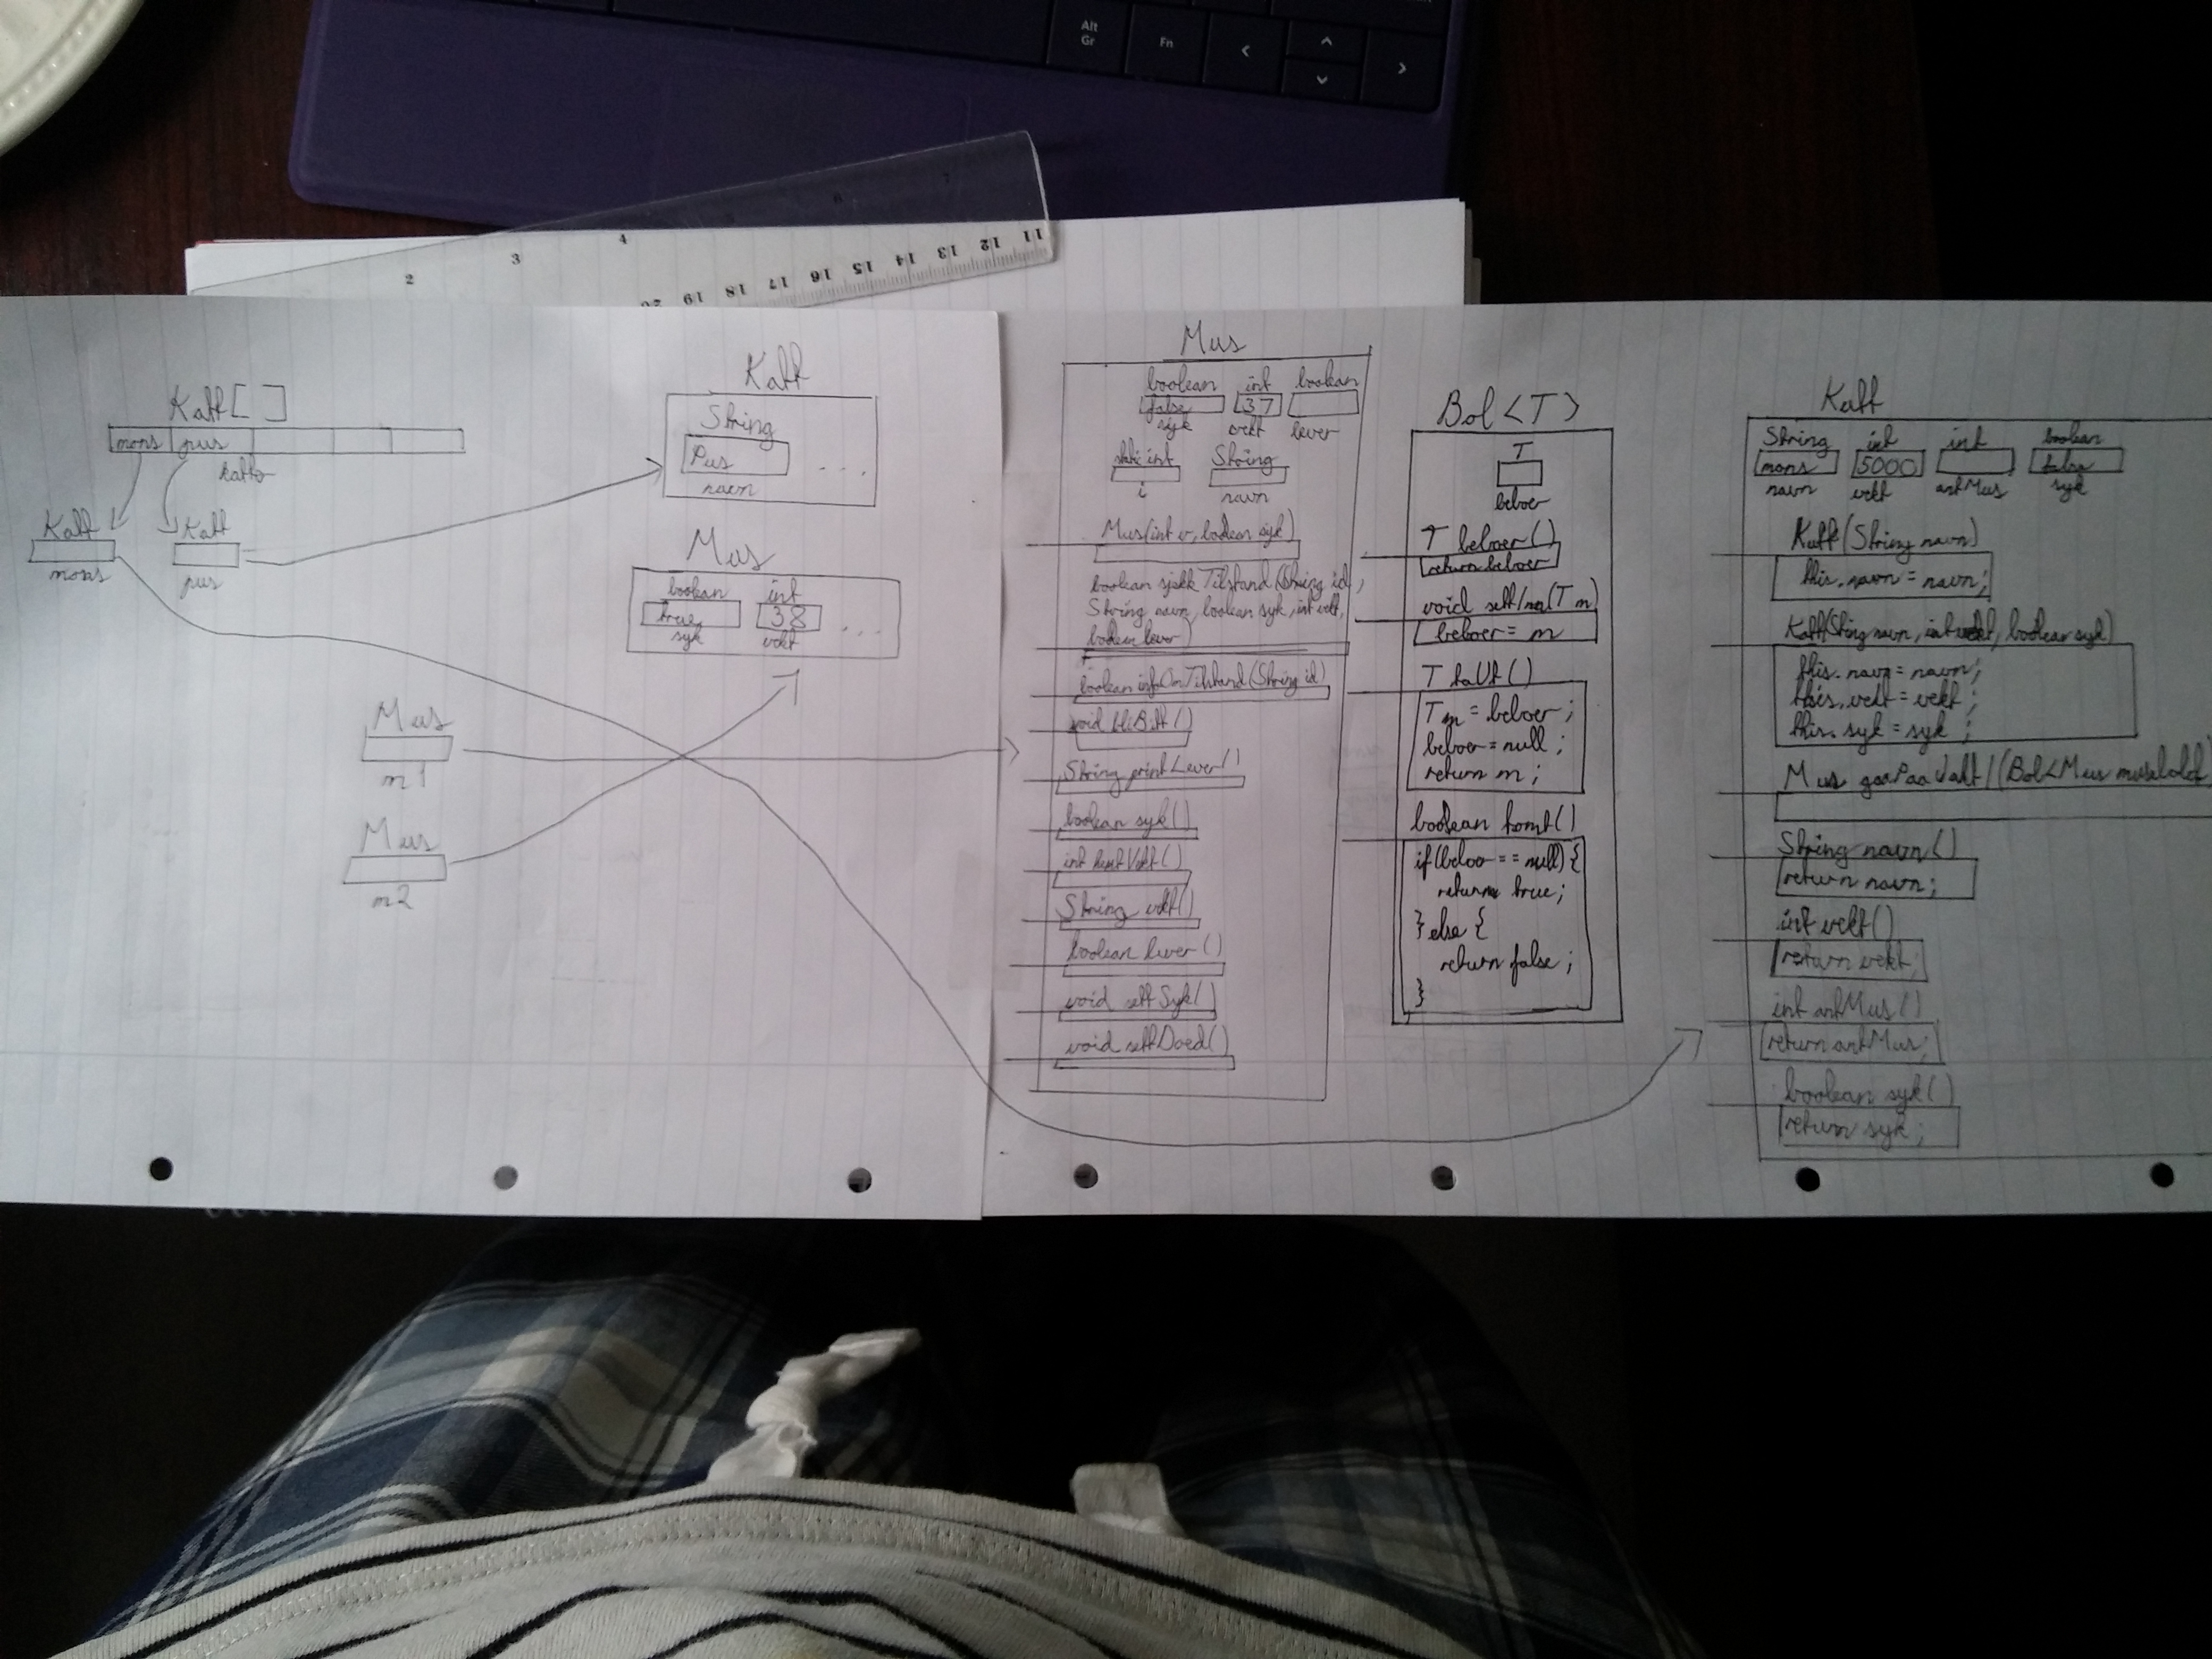 Alt
Gr
Fn
<
^
v
>
2
3
4
6
7
20 19 18 17 16 15 14 13 12 11
Katt[ ]
mons pus
Katt
mons
Katt
pus
Katt
String
Pus
navn
...
Mus
boolean int
true 38
syk vekt
...
Mus
m1
Mus
m2
Mus
boolean int boolean
false 37
syk vekt lever
static int String
i navn
Mus(int v, boolean syk)
boolean sjekkTilstand(String id,
String navn, boolean syk, int vekt,
boolean lever)
boolean infoOmTilstand(String id)
void bliBitt()
String printLever()
boolean syk()
int hentVekt()
String vekt()
boolean lever()
void settSyk()
void settDoed()
Bol<T>
T
beboer
T beboer()
return beboer
void settInn(T m)
beboer = m
T taUt()
T m = beboer;
beboer = null;
return m;
boolean tomt()
if(beboer == null) {
return true;
} else {
return false;
}
Katt
String int int boolean
mons 5000 false
navn vekt antMus syk
Katt(String navn)
this.navn = navn;
Katt(String navn, int vekt, boolean syk)
this.navn = navn;
this.vekt = vekt;
this.syk = syk;
Mus gaaPaaJakt(Bol<Mus
String navn()
return navn;
int vekt()
return vekt;
int antMus()
return antMus;
boolean syk()
return syk;